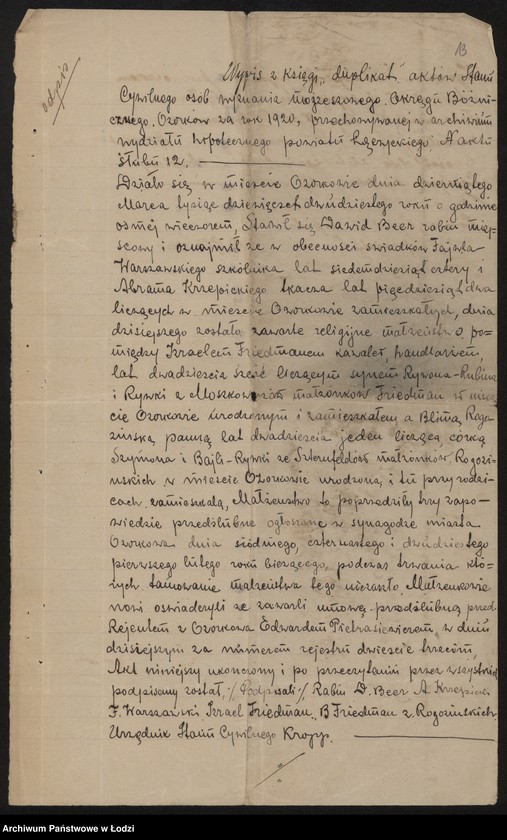 13
odpis
Wypis z Księgi „duplikat" aktów Stanu
Cywilnego osób wyznania mojżeszowego. Okręgu Bożni-
cznego. Ozorków za rok 1920, przechowywanej w archiwum
wydziału hipotecznego powiatu Łęczyckiego. N aktu
ślubu 12.
Działo się w mieście Ozorkowie dnia dziewiątego
Marca tysiąc dziewięćset dwudziestego roku o godzinie
ósmej wieczorem, Stawił się Dawid Beer rabin miej-
scowy i oznajmił że w obecności świadków Fajwla
Warszawskiego szkólnika lat siedemdziesiąt cztery i
Abrama Krzepickiego tkacza lat pięćdziesiąt dwa
liczących w mieście Ozorkowie zamieszkałych, dnia
dzisiejszego zostało zawarte religijne małżeństwo, po-
między Izraelem Friedmanem kawaler, handlarzem,
lat dwadzieścia sześć liczącym synem Rubina
i Rywki z Moszkowiczów małżonków Friedman w mieś-
cie Ozorkowie urodzonym i zamieszkałem a Blimą Rogo-
zińską panną lat dwadzieścia jeden liczącą córką
Szymona i Bajli-Rywki ze Szternfeldów małżonków Rogoziń-
skich w mieście Ozorkowie urodzoną, i tu przy rodzi-
cach zamieszkałą, Małżeństwo to poprzedziły trzy zapo-
wiedzie przedślubne ogłoszone w synagodze miasta
Ozorkowa dnia siódmego, czternastego i dwudziestego
pierwszego lutego roku bieżącego, podczas trwania któ-
rych tamowanie małżeństwa tego nie zaszło. Małżonkowie
nowi oświadczyli że zawarli umowę przedślubną przed
Rejentem z Ozorkowa Edwardem Pietrasiewiczem, w dniu
dzisiejszym za numerem rejestru dwieście trzecim,
Akt niniejszy ukończony i po przeczytaniu przez wszystkich
podpisany został, /Podpisali/ Rabin D. Beer A Krzepicki
F. Warszawski Izrael Friedman, B Friedman z Rogozinskich
Urzędnik Stanu Cywilnego Kropp.
Archiwum Państwowe w Łodzi